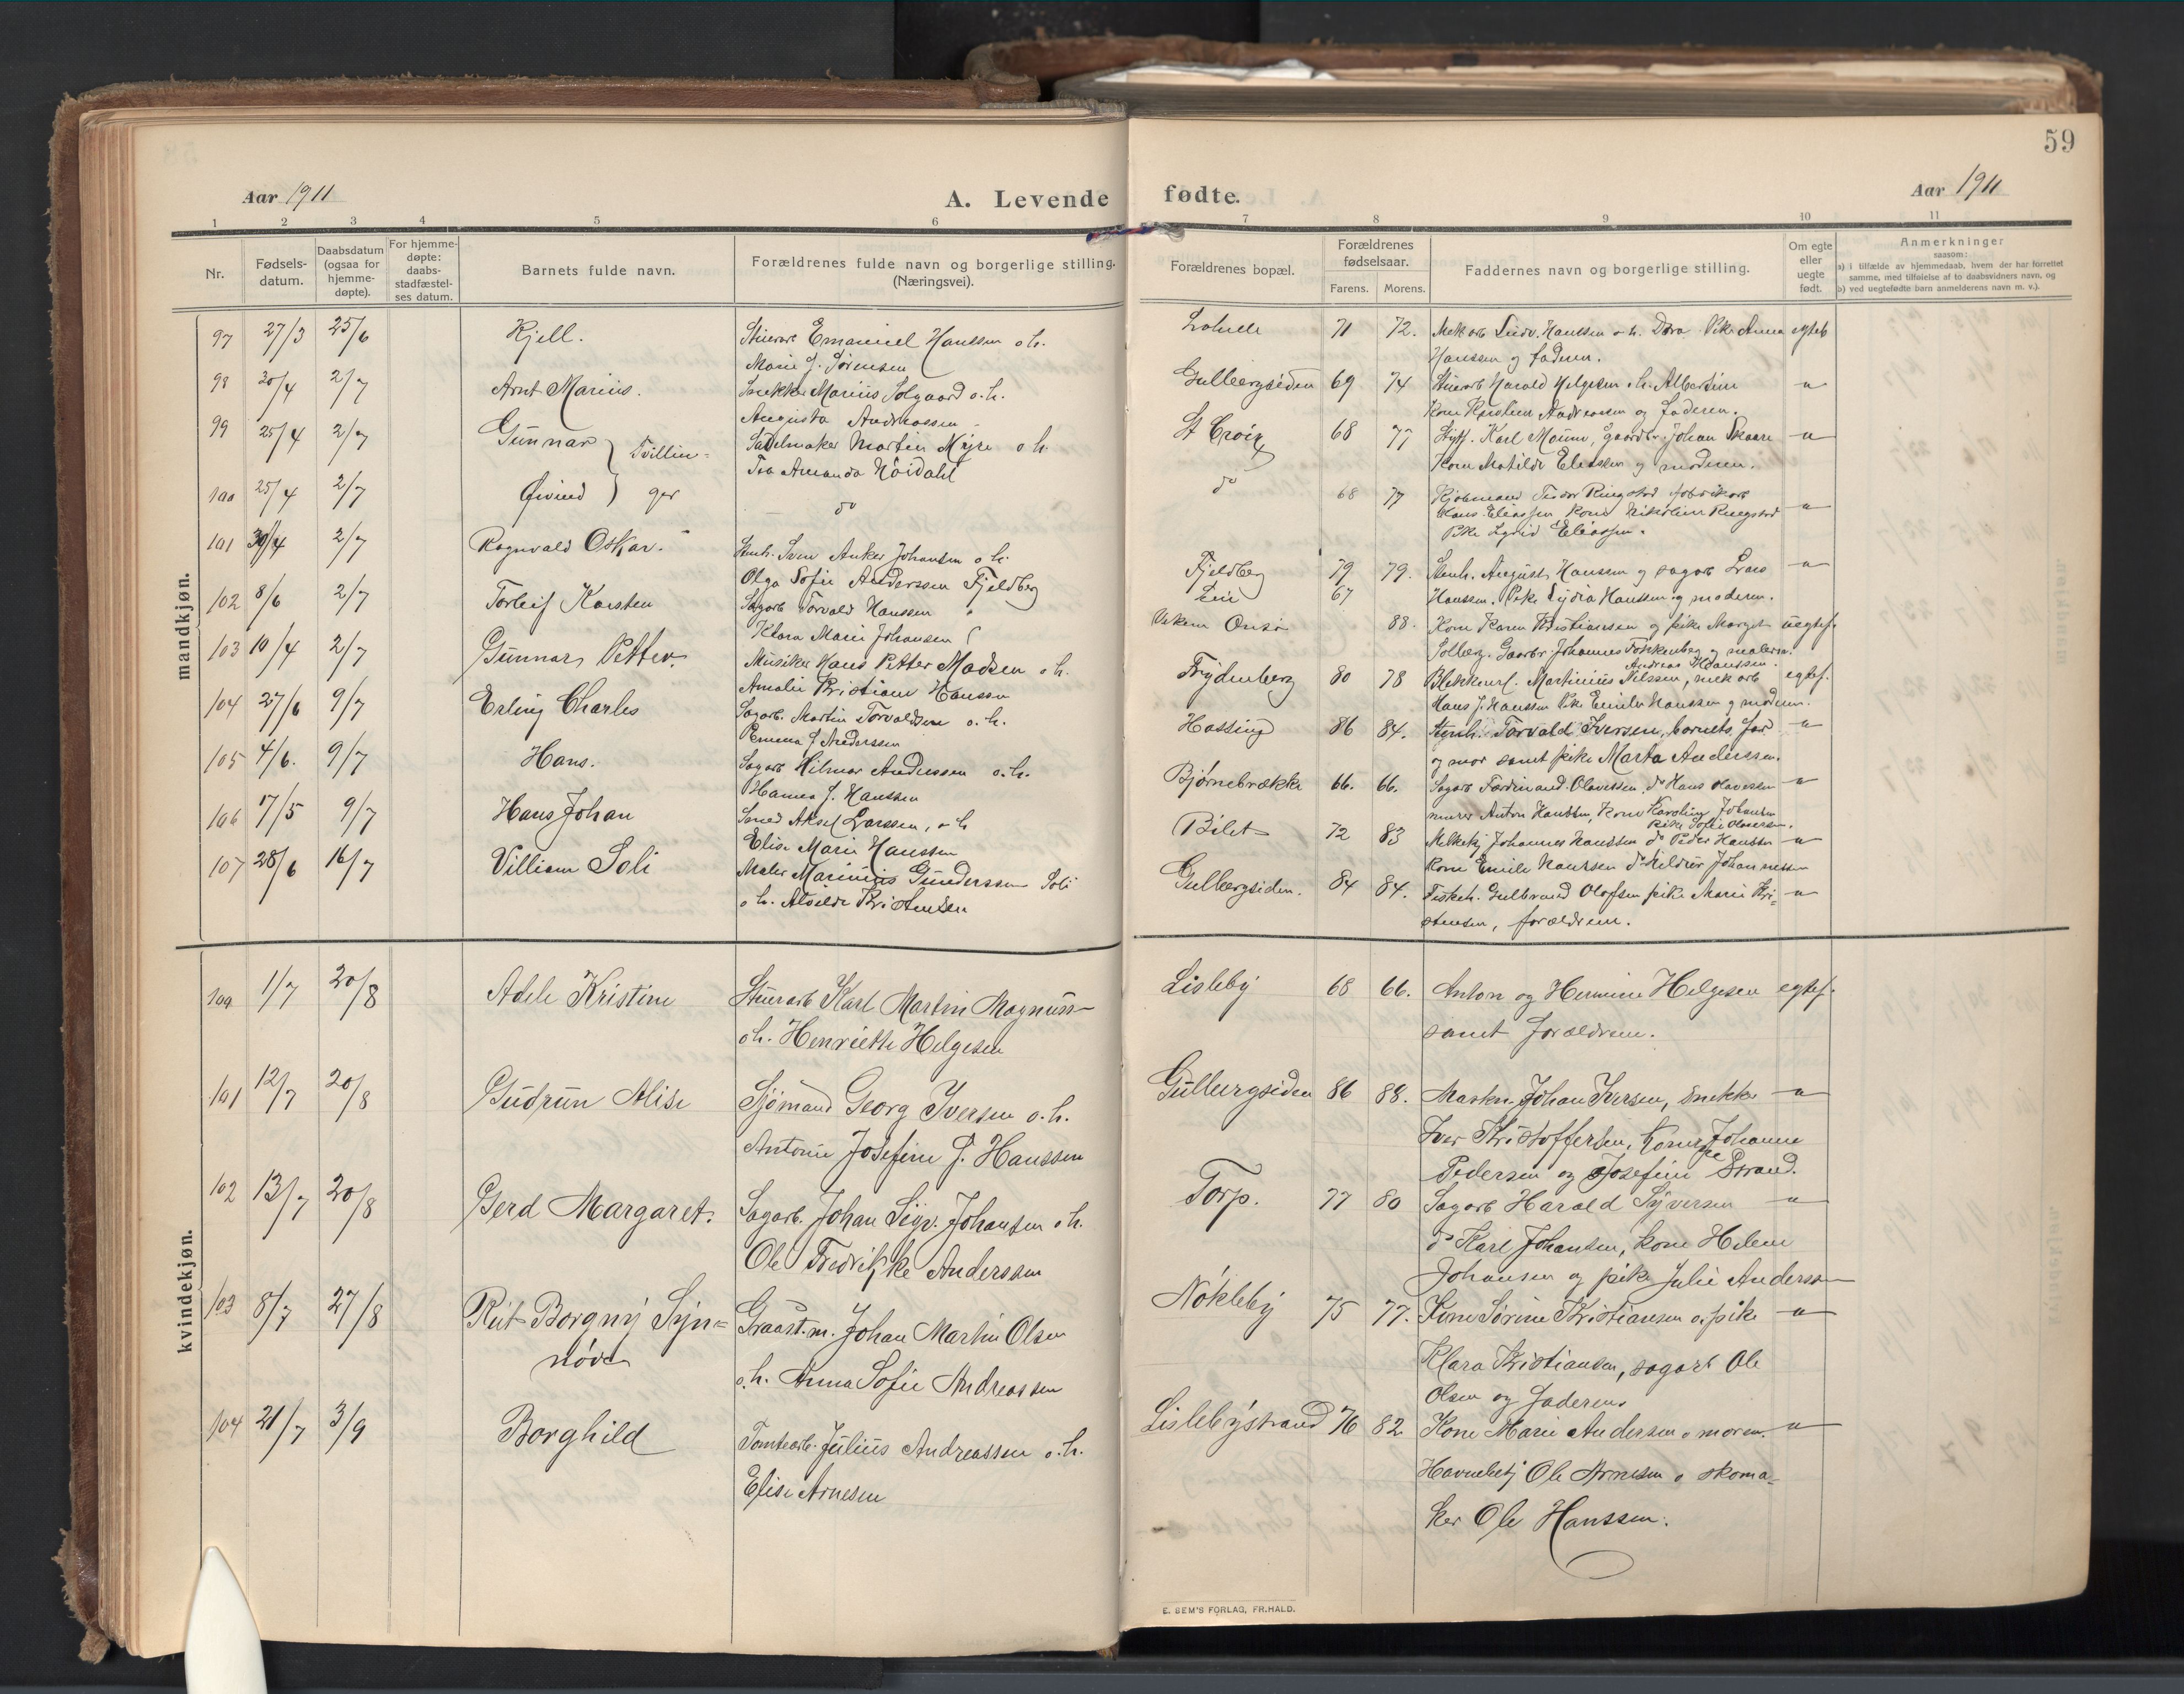 59
Aar 1911
A. Levende
fødte.
Aar 1911
1 2 3 4 5 6 7 8 9 10 11
Nr.
Fødsels-
datum.
Daabsdatum
(ogsaa for
hjemme-
døpte).
For hjemme-
døpte:
daabs-
stadfæstel-
ses datum.
Barnets fulde navn.
Forældrenes fulde navn og borgerlige stilling.
(Næringsvei).
Forældrenes bopæl.
Forældrenes
fødselsaar.
Farens. Morens.
Faddernes navn og borgerlige stilling.
Om egte
eller
uegte
født.
Anmerkninger
saasom:
a) i tilfælde av hjemmedaab, hvem der har forrettet
samme, med tilføielse af to daabsvidners navn, og
b) ved uegtefødte barn anmelderens navn m. v.).
mandkjøn.
97 27/3 25/6 Kjell. Stuerarb Emanuel Hanssen o. h.
Marie J. Sørensen
71 72. Mek arb Hanssen o. h. Dora Pike Anna egtef
Hanssen og faderen.
98 30/4 2/7 Arnt Marius. Snekker Marius Solgaard o. h.
Augusta Andreassen
Gulbergsiden 69 74 Stuerarb Harald Helgesen o. h. Albertine
Kone Andreassen og faderen.
99 25/4 2/7 Gunnar Tvillin= Sadelmaker Martin Myre o h.
Amanda Nöidahl
St Croix 68 77 Karl Gaardbr. Johan Skaare
Kone Matilde Eliassen og moderen.
100 25/4 2/7 Øivind ger do
do 68 77 Kjøbmand Ringstad
Hans Eliassen Kone Nikoline Ringstad
Pike Eliassen.
101 30/4 2/7 Ragnvald Oskar. Stenh. Sven Anker Johansen o h.
Olga Sofie Anderssen Fjeldberg
Fjeldberg 79 79. Stenh. August Hanssen og sagarb Lars
Hanssen. Pike Lydia Hanssen og moderen.
102 8/6 2/7 Torleif Karsten Sagarb Torvald Hanssen
Klara Marie Johansen
Lie 67
Onsø 88. Kone Karen Kristiansen og pike Margit uegtef.
Solberg. Gaarbr. Johannes og moderen.
103 10/4 2/7 Gunnar Petter. Musiker Hans Petter Madsen o h.
Amalie Kristiane Hanssen
Andreas Hanssen.
Frydenberg 80 78 Martinius Nilssen, mek arb egtef.
Hans J. Hanssen Pike Emilie Hanssen og moderen.
104 27/6 9/7 Erling Charles Sagarb. Martin Torvaldsen o. h.
Emma J Anderssen
Hassing 86 84. Torvald Iversen, barnets far
og mor samt pike Marta Anderssen.
105 4/6. 9/7 Hans. Sagarb Hilmar Anderssen o. h.
Hanna J. Hanssen
Bjørnebrække 66. 66. Sagarb Ferdinand Olavessen, do Hans Olavessen
murer Anton Hanssen, Kone Karoline Johansen
Pike Sofie
106 17/5 9/7 Hans Johan Smed Aksel Larssen, o h
Elise Marie Hanssen
Bilet 72 83 Johannes Hanssen do Peder Hanssen
Kone Emile Hanssen do Hildur Johannessen
107 28/6 16/7 Villiam Soli Maler Marinius Gunderssen Soli
o h. Alvilde Kristensen
Gulbergsiden. 84 84. Fiskeh. Gulbrand Olafsen pike Marie Kri=
stensen, forældrene.
kvindekjøn.
100 1/7 20/8 Adele Kristine Stuerarb Karl Martin Magnuss
o h. Henriette Helgesen
Lisleby 68 66. Anton og Hermine Helgesen egtef.
samt forældrene.
101 12/7 20/8 Gudrun Alise Sjømand Georg Iversen o. h.
Antonie Josefine J. Hanssen
Gulbergsiden 86 88. Maskn. Johan Iversen, snekker
Iver Kristoffersen, Kone Johanne
Pedersen og Josefine Strand.
102 13/7 20/8 Gerd Margaret. Sagarb. Johan Sigv. Johansen o h.
Ole Fredrikke Anderssen
Torp. 77 80 Sagarb Harald Syversen
do Karl Johansen, kone Helene
Johansen og pike Julie Anderssen
103 8/7 27/8 Rut Borgny Syn=
nøve
Graast.m. Johan Martin Olsen
o. h. Anna Sofie Andreassen
Nökleby 75 77. Kone Sørine Kristiansen o. pike
Klara Kristiansen, sagarb Ole
Olsen og faderen.
104 21/7 3/9 Borghild Tomtearb. Julius Andreassen o. h.
Elise Arnesen
Lislebystrand 76 82 Kone Marie Andersen o moren.
Havnebetj Ole Arnesen o skoma=
ker Ole Hanssen.
E. SEM'S FORLAG, FR.HALD.